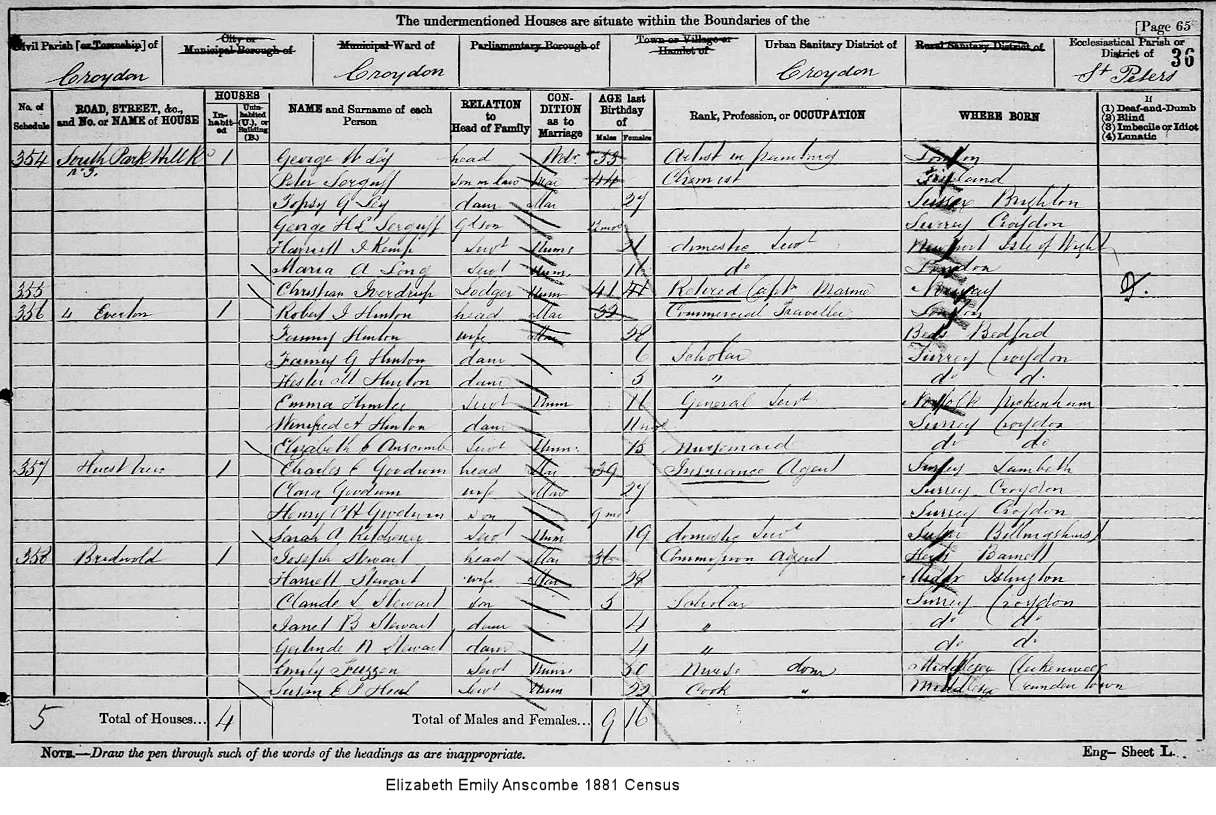 The undermentioned Houses are situate within the Boundaries of the
[Page 65
Civil Parish [or Township] of City or Municipal Borough of Municipal Ward of Parliamentary Borough of Town or Village or Hamlet of Urban Sanitary District of Rural Sanitary District of Ecclesiastical Parish or District of 36
Croydon Croydon Croydon St Peters
No. of Schedule ROAD, STREET, &c., and No. or NAME of HOUSE HOUSES In-habit-ed Unin-habited (U.), or Building (B.) NAME and Surname of each Person RELATION to Head of Family CON-DITION as to Marriage AGE last Birthday of Males Females Rank, Profession, or OCCUPATION WHERE BORN If (1) Deaf-and-Dumb (2) Blind (3) Imbecile or Idiot (4) Lunatic
354 South Park Hill Rd 1 George W Ley head Widr 55 Artist in painting London
Peter son in law Mar 44 Chemist
Topsy G Ley daur Mar 27 Sussex Brighton
George H L Gdson Surrey Croydon
Harriett J Kemp Servt Unm 21 domestic Servt Newport Isle of Wight
Maria A Long Servt Unm 16 do London
355 Christian Sverdrup Lodger Unm 41 Retired Captn Marine Norway
356 4 Everton 1 Robert J Hinton head Mar 32 Commercial Traveller London
Fanny Hinton wife Mar 28 Beds Bedford
Fanny G Hinton daur 6 Scholar Surrey Croydon
Hester M Hinton daur 5 " do do
Emma Servt Unm 16 General Servt Norfolk
Winifred A Hinton daur 11 mo Surrey Croydon
Elizabeth E Anscomb Servt Unm 15 Nursemaid do do
357 Hurst View 1 Charles E Goodwin head Mar 39 Insurance Agent Surrey Lambeth
Clara Goodwin wife Mar 27 Surrey Croydon
Henry C H Goodwin son 9 mo Surrey Croydon
Sarah A Kitchener Servt Unm 19 domestic Servt Sussex Billingshurst
358 1 Joseph Stewart head Mar 36 Commission Agent Herts Barnett
Harriett Stewart wife Mar 28 Middx Islington
Claude L Stewart son 5 Scholar Surrey Croydon
Janet B Stewart daur 4 " do do
Gertrude N Stewart daur 4 " do do
Emily Servt Unm 30 Nurse dom Middlesex Clerkenwell
Susan E Servt Unm 22 Cook " Middlesex Camden Town
5 Total of Houses... 4 Total of Males and Females... 9 16
NOTE.—Draw the pen through such of the words of the headings as are inappropriate.
Eng- Sheet L.
Elizabeth Emily Anscombe 1881 Census